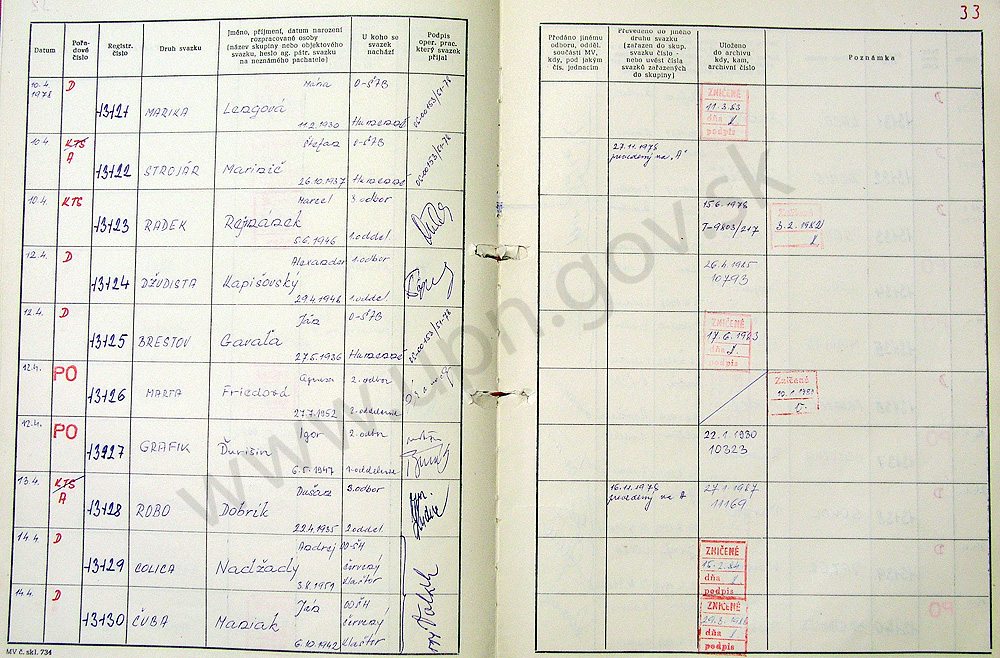 33
Datum
Pořa-
dové
číslo
Registr.
číslo
Druh svazku
Jméno, příjmení, datum narození
rozpracované osoby
(název skupiny nebo objektového
svazku, heslo ag. pátr. svazku
na neznámého pachatele)
U koho se
svazek
nachází
Podpis
oper. prac.
který svazek
přijal
Předáno jinému
odboru, odděl.
součásti MV,
kdy, pod jakým
čís. jednacím
Převedeno do jiného
druhu svazku
(zařazen do skup.
svazku číslo -
nebo uvést čísla
svazků zařazených
do skupiny)
Uloženo
do archivu
kdy, kam,
archivní číslo
Poznámka
10.4.
1978
D
13121
MARIKA
Mária
Lengová
11.2.1930
O-ŠTB
Humenné
ZNIČENÉ
11.3.83
dňa
podpis
10.4
KTS
A
13122
STROJÁR
Štefan
Marinič
26.10.1937
O-ŠTB
Humenné
27.11.1978
prevedený na "A"
10.4.
KTS
13123
RADEK
Marcel
5.6.1946
3.odbor
1.oddel.
15.6.1978
T-9803/217
3.2.1982
12.4.
D
13124
DŽUDISTA
Alexander
Kapišovský
29.4.1946
1.odbor
1.oddel.
26.4.1985
10793
12.4.
D
13125
BRESTOV
Ján
Gavaľa
27.5.1936
O-ŠTB
Humenné
ZNIČENÉ
17.6.1983
dňa
podpis
12.4.
PO
13126
MARTA
Friedová
27.7.1952
2.odbor
2.oddelenie
Zničené
12.4.
PO
13127
GRAFIK
Igor
Ďurišin
6.5.1947
2.odbor
1.oddelenie
22.1.1980
10323
13.4.
KTS
A
13128
ROBO
Dušan
Dobrík
22.4.1935
3.odbor
2.oddel.
16.11.1978
prevedený na A
27.1.1987
11169
14.4
D
13129
COLICA
Andrej
Nadžady
3.8.1959
OO-ŠH
Červený
Kláštor
ZNIČENÉ
15.2.84
dňa
podpis
14.4.
D
13130
ČUBA
Ján
Mariak
6.10.1942
OOŠH
Červený
Kláštor
ZNIČENÉ
dňa
podpis
MV č. skl. 734
www.upn.gov.sk